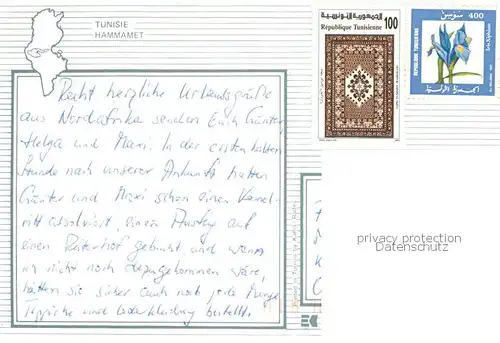 TUNISIE
HAMMAMET
Recht herzliche Urlaubsgrüße
aus Nordafrika senden Euch Günter,
Helga und Maxi. In der ersten halben
Stunde nach unserer Ankunft hatten
Günter und Maxi schon einen Kamel-
ritt absolviert, einen Ausflug auf
einen Reiterhof gebucht und wenn
ich nicht noch dazugekommen wäre,
hätten sie sicher auch noch jede Menge
Teppiche und Lederkleidung bestellt.
الجمهورية التونسية
100
République Tunisienne
400
REPUBLIQUE TUNISIENNE
privacy protection
Datenschutz